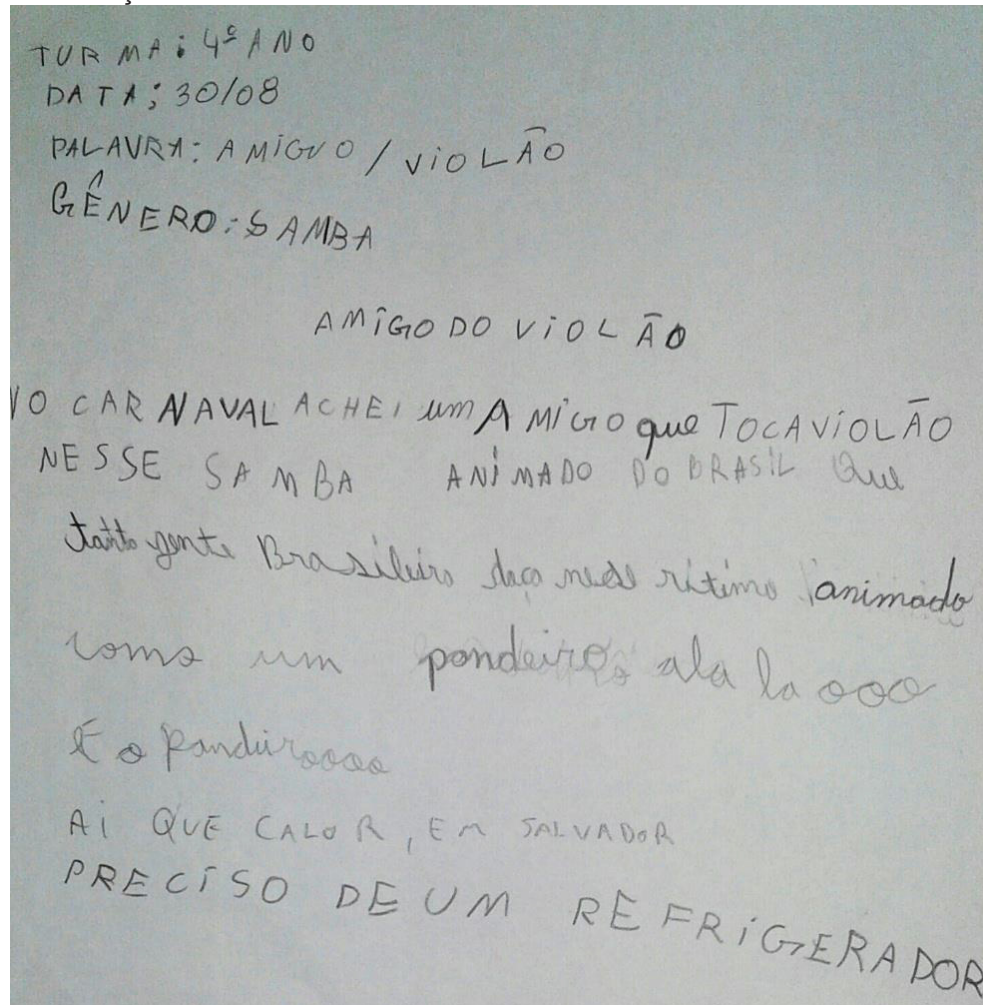 TURMA: 4º ANO
DATA: 30/08
PALAVRA: AMIGO / VIOLÃO
GÊNERO: SAMBA
AMIGO DO VIOLÃO
NO CARNAVAL ACHEI um AMIGO que TOCA VIOLÃO
NESSE SAMBA ANIMADO DO BRASIL Que
tanto gente Brasileiro daça nese rítimo animado
como um pandeiro, ala la ooo
E o Pandeiroooo
AI QUE CALOR, EM SALVADOR
PRECISO DE UM REFRIGERADOR